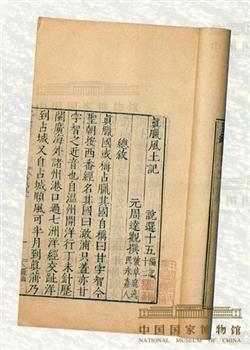 中國國家博物館
眞臘風土記　說選十五
元周達觀撰
總敘
眞臘國或稱占臘其國自稱曰甘孛智今
聖朝按西番經名其國曰澉浦只蓋亦甘
孛智之近音也自溫州開洋行丁未針歷
閩廣海外諸州港口過七洲洋經交趾洋
到占城又自占城順風可半月到眞蒲乃
中國國家博物館
NATIONAL MUSEUM OF CHINA